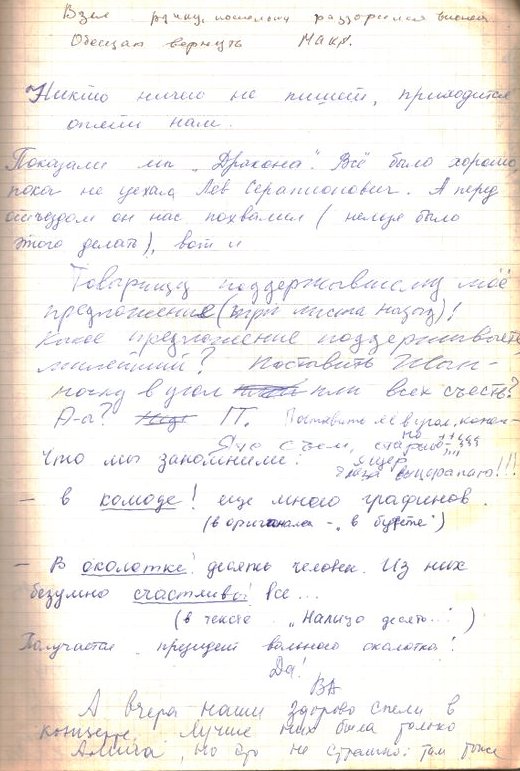 Взял рынку, поскольку раздорился
Обещал вернуть Макр.
Никто ничего не пишет, приходится
опять нам.
Показали мы „Дракона". Всё было хорошо,
пока не уехал Лев Серапионович. А перед
отъездом он нас похвалил (нельзя было
этого делать), вот и
Товарищу поддержавшему моё
предложение (три листа назад)!
Какое предложение поддерживаете,
милейший? Поставить Иван-
ночку в угол или всех съесть?
А-а? П. Поставить её в угол, конеч-
Я то съем,
Что мы запомнили: ящер
глаза выцарапаю!!!
– в комоде! еще много графинов.
(в оригинале – „в буфете")
– В околотке! десять человек. Из них
безумно счастливы! все...
(в тексте „Налицо десять...")
Получается, президент вольного околотка!
Да!
ВА
А вчера наши здорово спели в
концерте. Лучше них была только
но это не страшно: там тоже